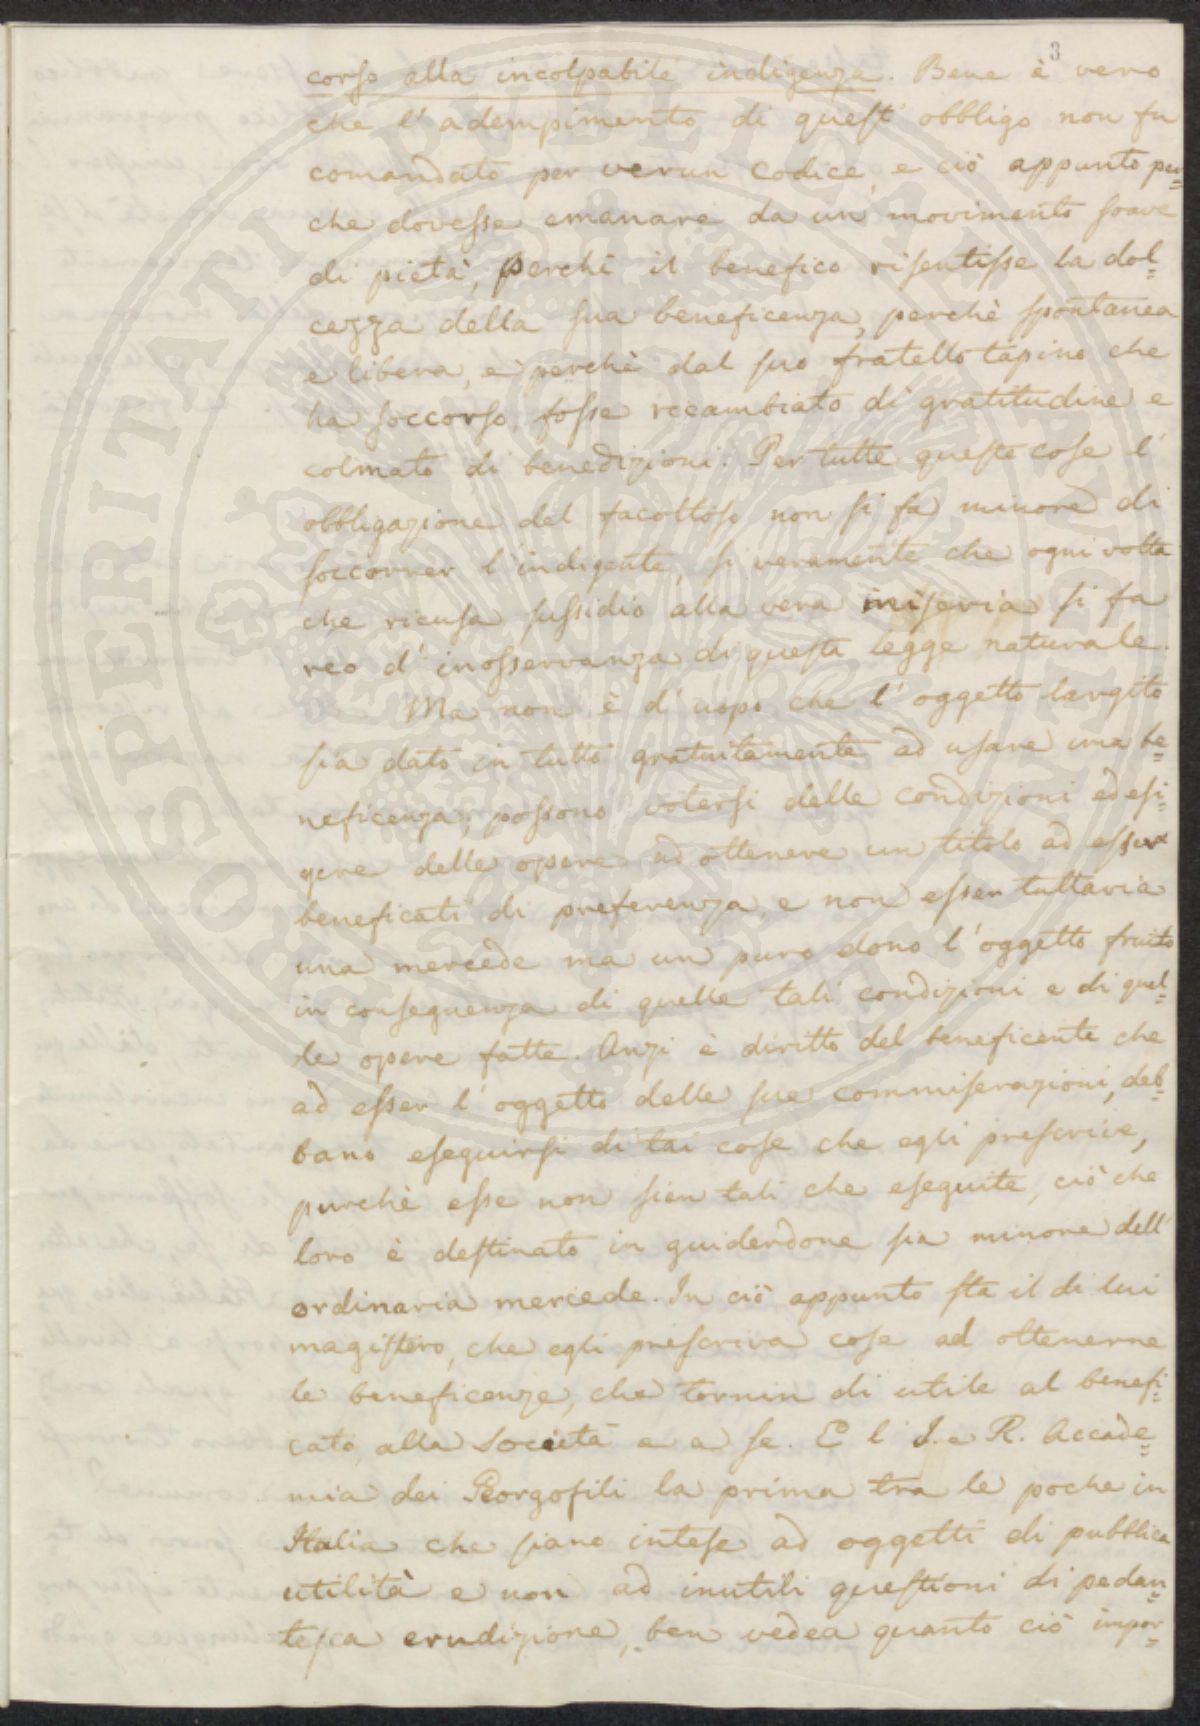 3
corso alla incolpabile indigenza. Bene è vero
che l'adempimento di quest'obbligo non fu
comandato per verun codice, e ciò appunto per=
che dovesse emanare da un movimento soave
di pietà, perchè il benefico risentisse la dol=
cezza della sua beneficenza, perchè spontanea
e libera, e perchè dal suo fratello tapino che
ha soccorso, fosse ricambiato di gratitudine e
colmato di benedizioni. Per tutte queste cose l'
obbligazione del facoltoso non si fa minore di
soccorrer l'indigente, si veramente che ogni volta
che ricusa sussidio alla vera miseria si fa
reo d'inosservanza di questa legge naturale.
Ma non è d'uopo che l'oggetto largito
sia dato in tutto gratuitamente ad usare una be=
neficenza; possono volersi delle condizioni ed esi=
gere delle opere ad ottenere un titolo ad esser
beneficati di preferenza, e non esser tuttavia
una mercede ma un puro dono l'oggetto fruito
in conseguenza di quelle tali condizioni e di quel=
le opere fatte. Anzi è diritto del beneficente che
ad esser l'oggetto delle sue commiserazioni, deb=
bano eseguirsi di tai cose che egli prescrive,
purchè esse non sien tali che eseguite, ciò che
loro è destinato in guiderdone sia minore dell'
ordinaria mercede. In ciò appunto sta il di lui
magistero, che egli prescriva cose ad ottenerne
le beneficenze, che tornin di utile al benefi=
cato, alla Società e a se. E l'I. e R. Accade=
mia dei Georgofili la prima tra le poche in
Italia che siano intese ad oggetti di pubblica
utilità e non ad inutili questioni di pedan=
tesca erudizione, ben vedea quanto ciò impor=
PROSPERITATI PUBLICAE AUGENDAE